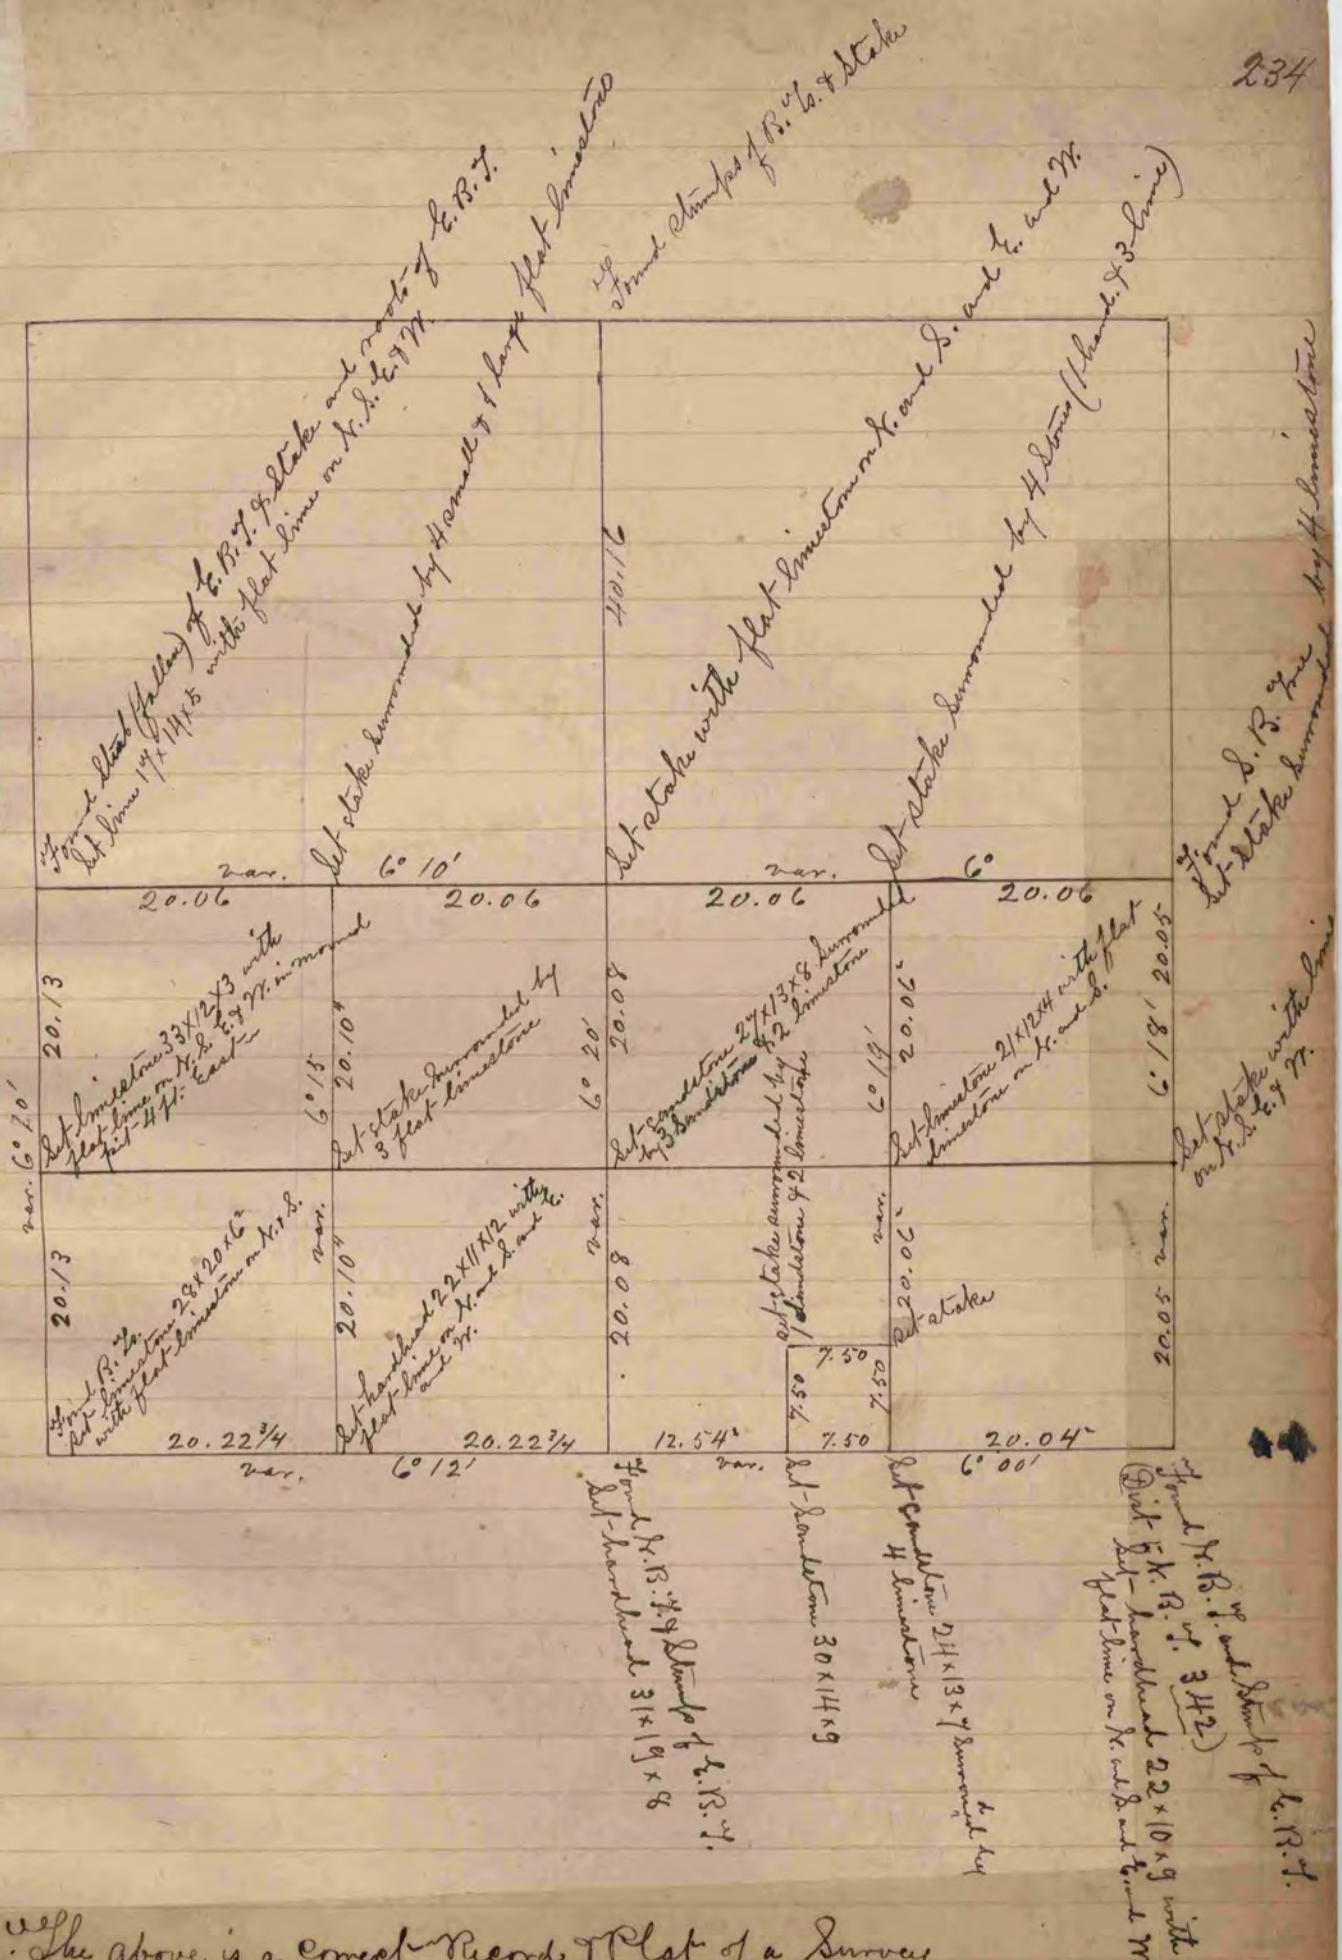 234
Found stumps of B. Ts. & Stake
Found Stub (fallen) of E. B. T. & Stake and roots of E. B. T.
Set lime 17x14x5 with flat lime on N. S. E. & W.
Set stake surrounded by 4 small & 1 large flat limestones
Set stake with flat limestone on N. and S. and E. and W.
Set stake surrounded by 4 Stones (1 hard. & 3 lime)
Found S. B. Tree
Set Stake surrounded by 4 limestone
40.16
var. 6° 10'
var. 6°
20.06
20.06
20.06
20.06
20.13
Set limestone 33x12x3 with
flat lime on N. S. E. & W. in mound
pit 4 ft. East
6° 15
20.10"
Set stake surrounded by
3 flat limestone
6° 20'
20.08
Set sandstone 27x13x8 surrounded
by 3 Sandstone & 2 limestone
6° 19'
20.06²
Set limestone 21x12x4 with flat
limestone on N. and S.
6° 18'
20.05
Set stake with
on N. S. E. & W.
var. 6° 20'
20.13
Found B. Ts.
Set limestone 28x20x6²
with flat limestone on N. & S.
var.
20.10"
Set hardhead 22x11x12 with
flat lime on N. and S. and E.
and W.
var.
20.08
set stake surrounded by
1 Sandstone & 2 limestone
var.
20.06²
Set stake
20.05 var.
7.50
7.50
7.50
20.22 3/4
20.22 3/4
12.54²
7.50
20.04²
var. 6° 12'
var. 6° 00'
Found N. B. T. & Stump of E. B. T.
Set hardhead 31x19x8
Set Sandstone 30x14x9
Set Sandstone 24x13x7 surrounded by
4 limestone
Found N. B. T. and Stump of E. B. T.
(Dist to N. B. T. 342)
Set hardhead 22x10x9 with
flat lime on N. and S. and E. and W
The above is a Correct Record & Plat of a Survey